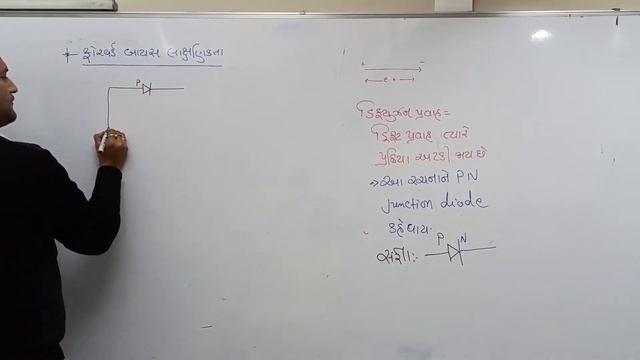 * ફોરવર્ડ બાયસ લાક્ષણિકતા
P
+ −
e
ડિફ્યુઝન પ્રવાહ =
ડ્રિફ્ટ પ્રવાહ ત્યારે
પ્રક્રિયા અટકી જાય છે
→ આ રચનાને PN
junction diode
કહેવાય.
P N
સંજ્ઞા:-